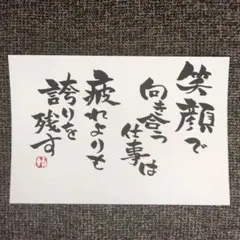 笑顔で
向き合う
仕事は
疲れよりも
誇りを
残す